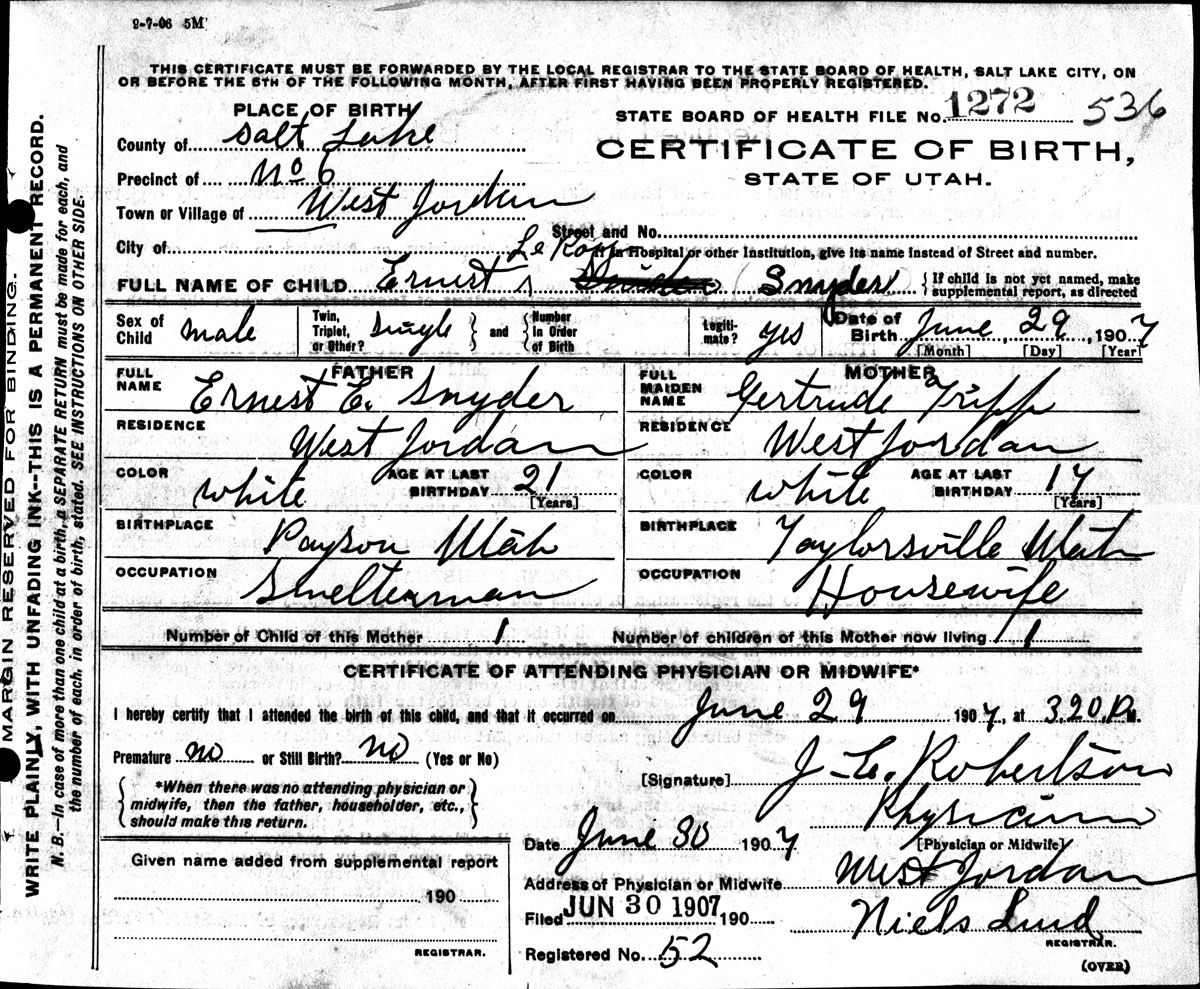 9-7-06 5M
THIS CERTIFICATE MUST BE FORWARDED BY THE LOCAL REGISTRAR TO THE STATE BOARD OF HEALTH, SALT LAKE CITY, ON
OR BEFORE THE 5TH OF THE FOLLOWING MONTH, AFTER FIRST HAVING BEEN PROPERLY REGISTERED.
PLACE OF BIRTH
STATE BOARD OF HEALTH FILE No. 1272 536
County of Salt Lake
CERTIFICATE OF BIRTH,
Precinct of No 6
STATE OF UTAH.
Town or Village of West Jordan
Street and No.
City of
If in Hospital or other Institution, give its name instead of Street and number.
Le Roy
FULL NAME OF CHILD Ernest Snyder
{ If child is not yet named, make
supplemental report, as directed
Sex of Child male
Twin, Triplet, or Other? Single } and { Number In Order of Birth
Legiti-mate? yes
Date of Birth June 29, 1907
[Month] [Day] [Year]
FATHER
FULL NAME Ernest E. Snyder
MOTHER
FULL MAIDEN NAME Gertrude Tripp
RESIDENCE West Jordan
RESIDENCE West Jordan
COLOR white AGE AT LAST BIRTHDAY 21 [Years]
COLOR white AGE AT LAST BIRTHDAY 17 [Years]
BIRTHPLACE Payson Utah
BIRTHPLACE Taylorsville Utah
OCCUPATION Smelterman
OCCUPATION Housewife
Number of Child of this Mother 1 Number of children of this Mother now living 1
CERTIFICATE OF ATTENDING PHYSICIAN OR MIDWIFE*
I hereby certify that I attended the birth of this child, and that it occurred on June 29 1907, at 3.20.P.M.
Premature no or Still Birth? no (Yes or No)
[Signature] J. E. Robertson
{ *When there was no attending physician or
midwife, then the father, householder, etc.,
should make this return. }
Physician
[Physician or Midwife]
Date June 30 1907
Given name added from supplemental report
190
REGISTRAR.
Address of Physician or Midwife West Jordan
Filed JUN 30 1907 190
Niels Lind
REGISTRAR.
Registered No. 52
(OVER)
MARGIN RESERVED FOR BINDING.
WRITE PLAINLY, WITH UNFADING INK--THIS IS A PERMANENT RECORD.
N. B.—In case of more than one child at a birth, a SEPARATE RETURN must be made for each, and
the number of each, in order of birth, stated. SEE INSTRUCTIONS ON OTHER SIDE.